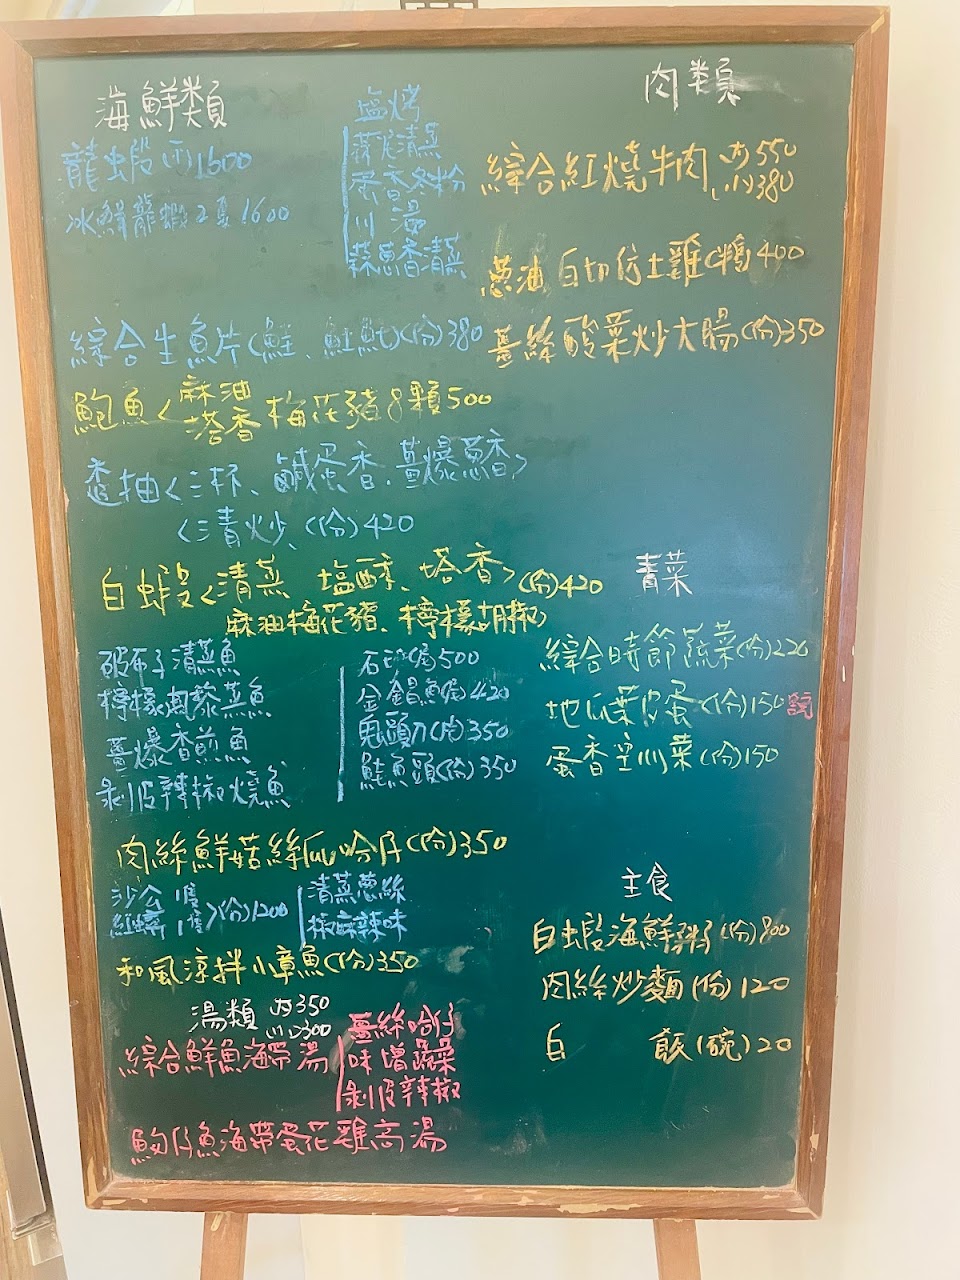 海鮮類
龍虫段(斤)1600
冰鮮龍蝦2隻1600
塩烤
蒜茸清蒸
蛋香冬粉
川湯
蒜魚香清蒸
綜合生魚片(鮭、魟魠)(份)380
鮑魚<麻油
塔香 梅花豬8顆500
透抽<三杯、鹹蛋香.薑爆魚香>
<清炒、(份)420
白蝦<清蒸 塩酥、塔香>(份)420
麻油梅花豬、檸檬胡椒
破布子清蒸魚
檸檬鳳黎蒸魚
薑爆香煎魚
剥皮辣椒燒魚
石斑(尾)500
金鯧魚(尾)420
鬼頭刀(份)350
鮭魚頭(份)350
肉絲鮮菇絲瓜哈仔(份)350
沙公 1隻
紅蟳 1隻>(份)1200
清蒸蔥絲
椒麻辣味
和風涼拌小章魚(份)350
湯類 大350
小300
綜合鮮魚海帶湯
薑絲哈仔
味增蔬菜
剥皮辣椒
魩仔魚海帶蛋花雞高湯
肉類
綜合紅燒牛肉 大550
小380
蔥油白切仿土雞(鴨)400
薑絲酸菜炒大腸(份)350
青菜
綜合時節蔬菜(份)220
地瓜葉皮蛋(份)150
蛋香空心菜(份)150
主食
白虫段海鮮粥(份)800
肉絲炒麵(份)120
白 飯(碗)20